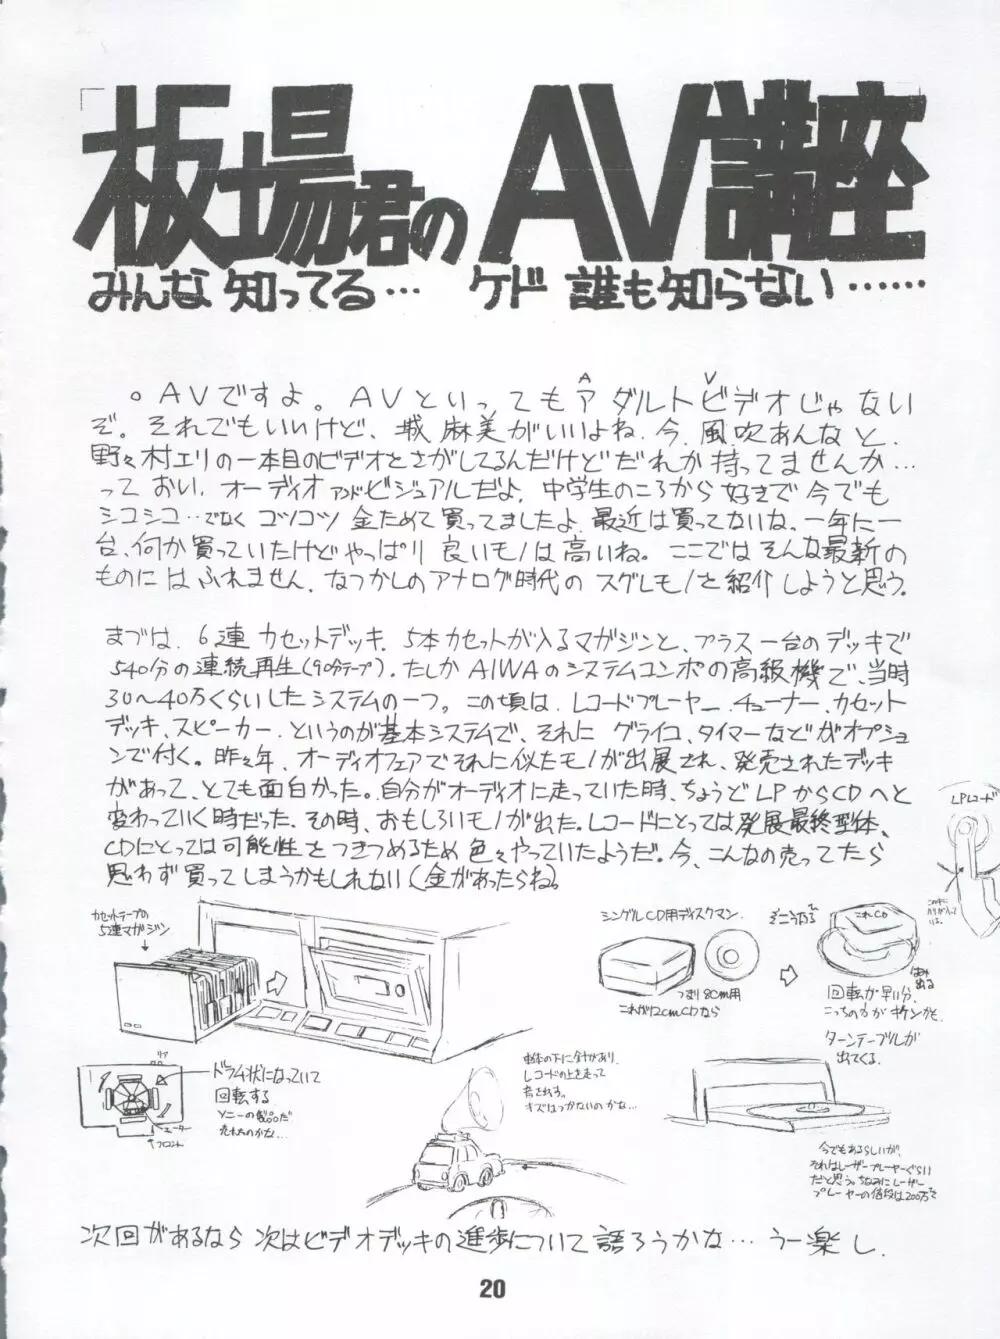 「板場君のAV講座」
みんな知ってる… ケド 誰も知らない……
。AVですよ。AVといってもアダルトビデオじゃない
A V
ぞ。それでもいいけど、城麻美がいいよね、今、風吹あんなと、
野々村エリの一本目のビデオとさがしてるんだけどだれか持ってませんか…
っておい、オーディオアンドビジュアルだよ、中学生のころから好きで今でも
シコシコ…でなくコツコツ金ためて買ってましたよ、最近は買ってないな、一年に一
台、何か買っていたけどやっぱり良いモノは高いね。ここではそんな最新の
ものにはふれません、なつかしのアナログ時代のスグレモノを紹介しようと思う。
まづは、6連カセットデッキ、5本カセットが入るマガジンと、プラス一台のデッキで
540分の連続再生(90分テープ)、たしかAIWAのシステムコンポの高級機で、当時
30〜40万くらいしたシステムの一つ。この頃は、レコードプレーヤー、チューナー、カセット
デッキ、スピーカー、というのが基本システムで、それにグライコ、タイマーなどがオプショ
ンで付く。昨々年、オーディオフェアでそれに似たモノが出展され、発売されたデッキ
があって、とても面白かった。自分がオーディオに走っていた時、ちょうどLPからCDへと
変わっていく時だった、その時、おもしろいモノが出た。レコードにとっては発展最終型体、
CDにとっては可能性をつきつめるため色々やっていたようだ。今、こんなの売ってたら
思わず買ってしまうかもしれない(金があったらね)。
LPレコード
この中に
ハリが入って
いる。
カセットテープの
5連マガジン
シングルCD用ディスクマン
つまり8cm用
これが12cmCDなら
そこうなる
これCD
はみ
出る
回転が早い分、
こっちの方がオドロくと。
リア
モーター
フロント
ドラム状になっていて
回転する
ソニーの製品だ
売れたのかな…
車体の下に針があり、
レコードの上を走って
音を出す。
キズはつかないのかな…
ターンテーブルが
出てくる。
今でもあるらしいが、
それはレーザープレーヤーぐらい
だと思う。ちなみにレーザー
プレーヤーの値段は200万で
次回があるなら次はビデオデッキの進歩について語ろうかな… うー楽し、
20